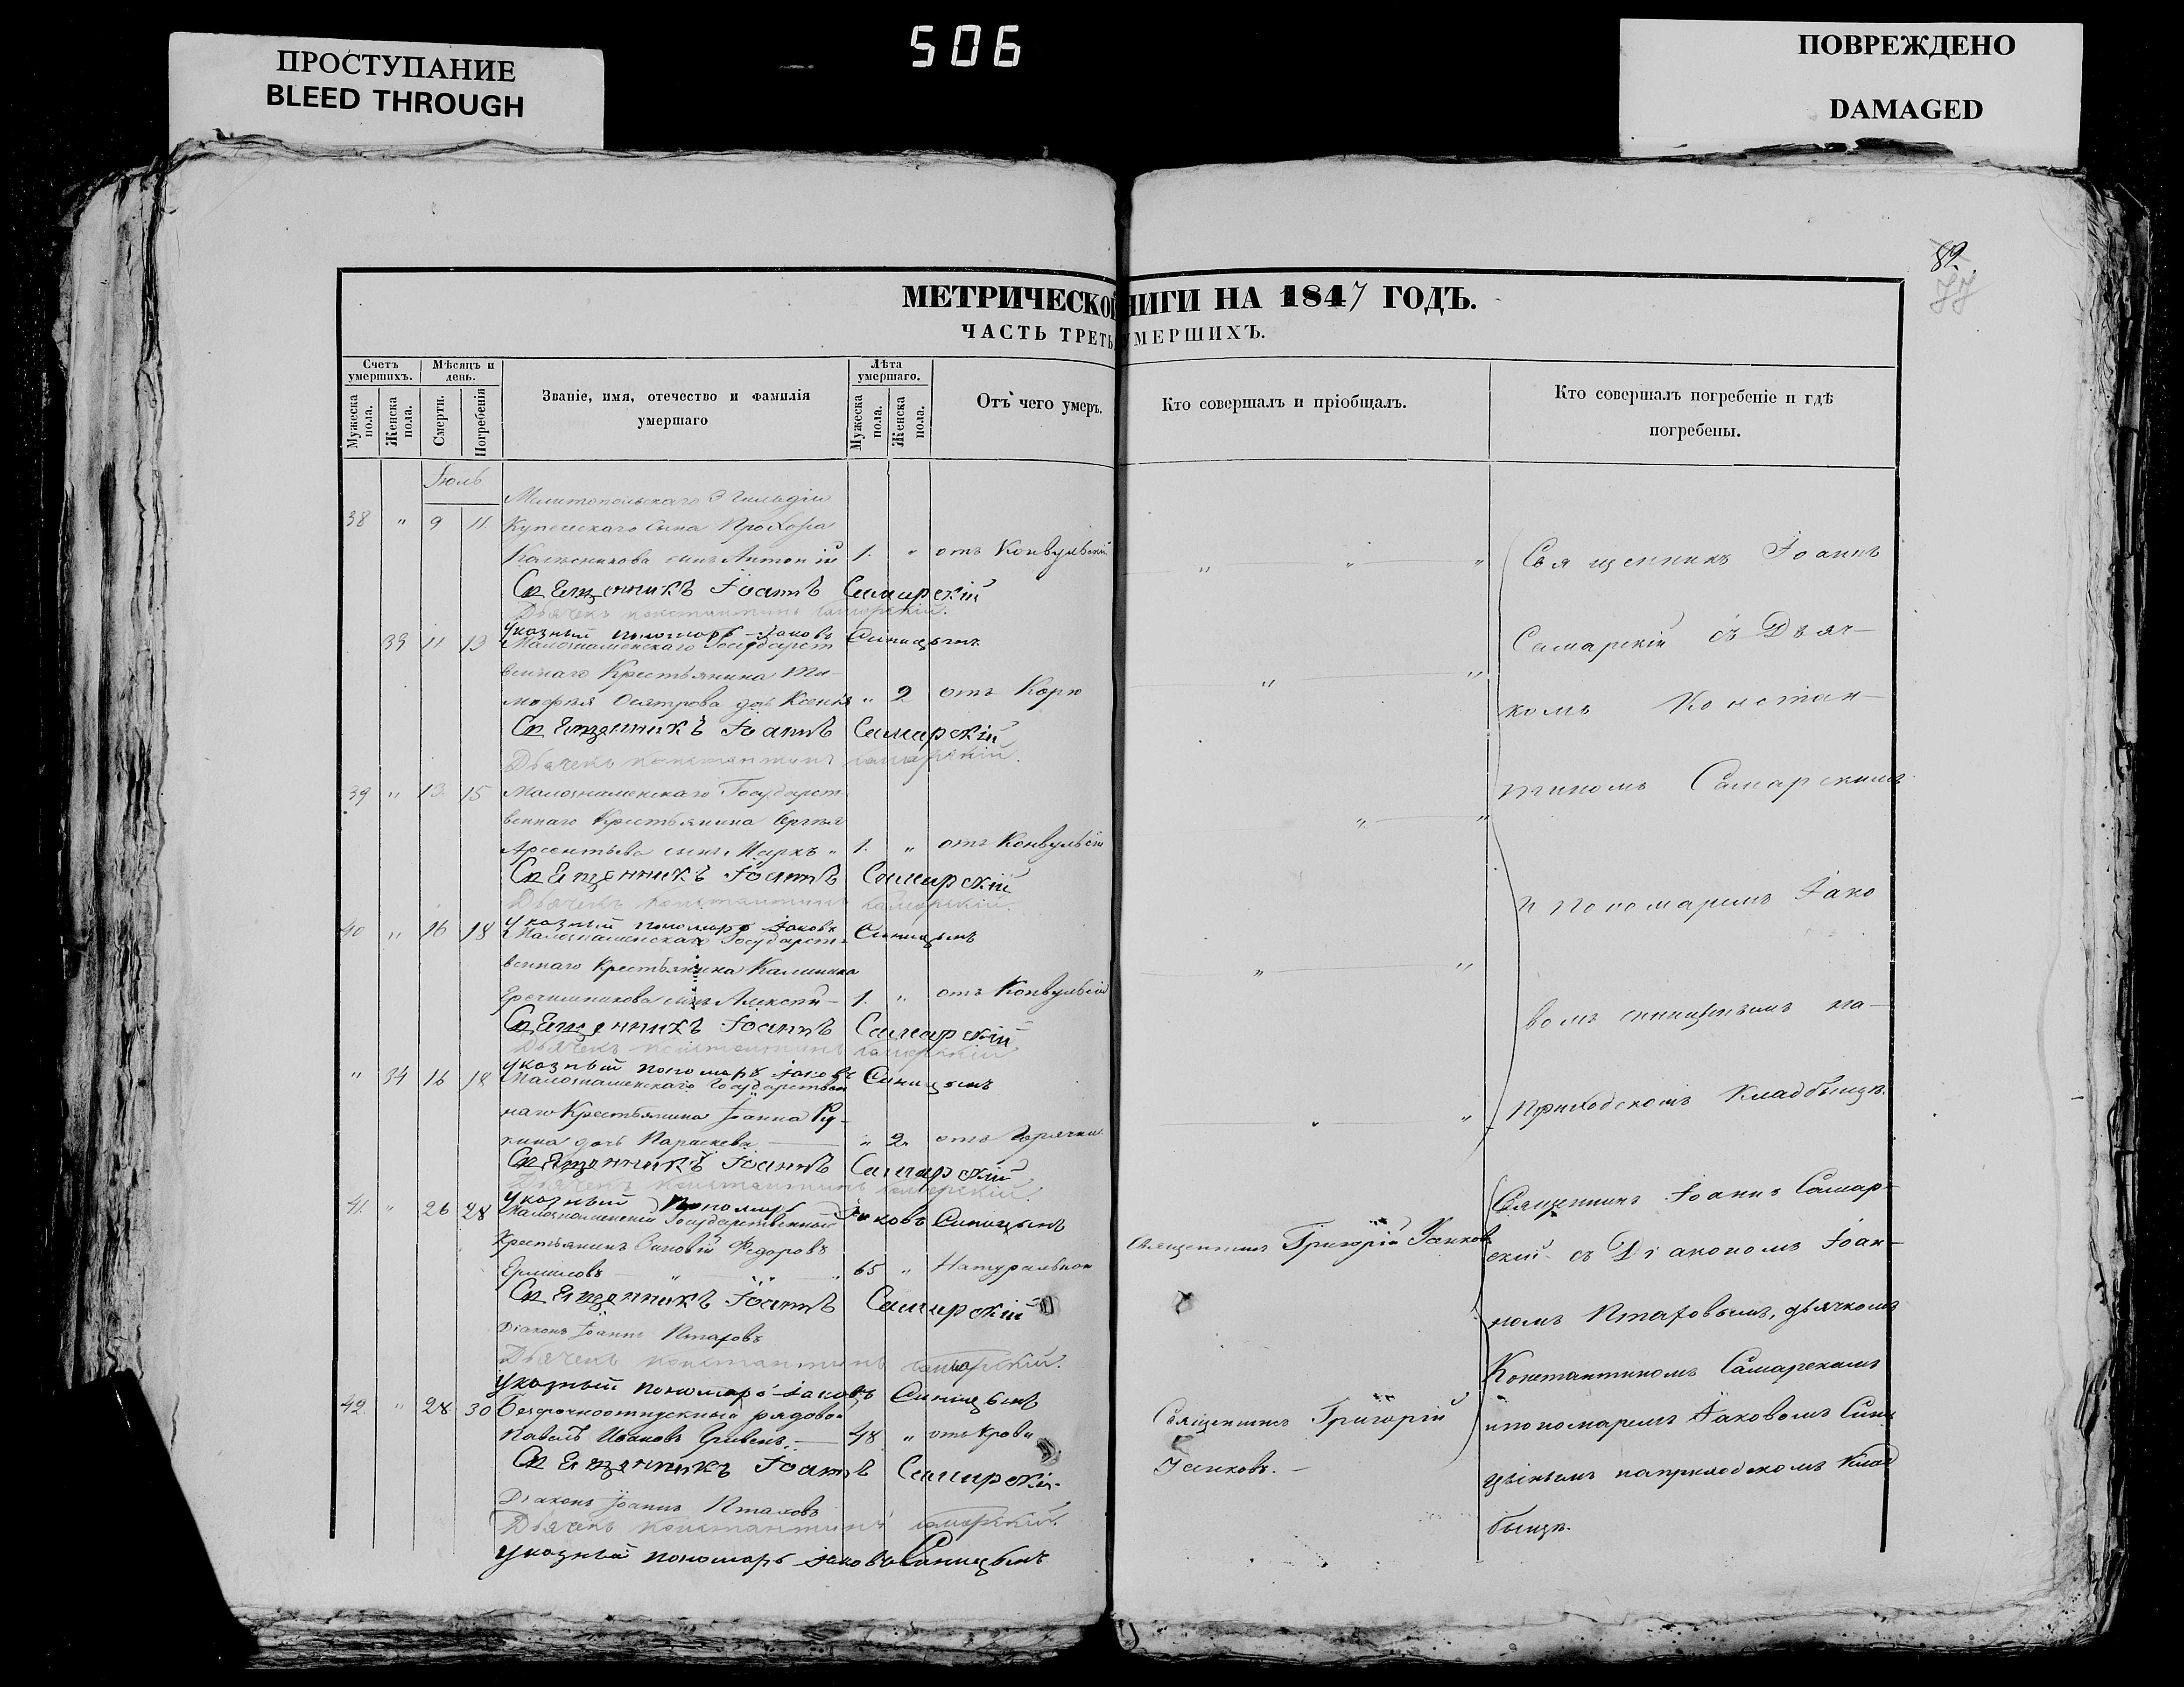 ПРОСТУПАНИЕ
BLEED THROUGH
506
ПОВРЕЖДЕНО
DAMAGED
82
77
МЕТРИЧЕСКОЙ
НИГИ НА 1847 ГОДЪ.
ЧАСТЬ ТРЕТЬ
УМЕРШИХЪ.
Счетъ умершихъ.
Мѣсяцъ и день.
Званіе, имя, отечество и фамилія умершаго
Лѣта умершаго.
Отъ чего умеръ.
Кто совершалъ и пріобщалъ.
Кто совершалъ погребеніе и гдѣ погребены.
Мужеска пола.
Женска пола.
Смерти.
Погребенія
Мужеска пола.
Женска пола.
Іюль
Мелитопольскаго 3 Гильдіи
38 " 9 11. Купеческаго Сына Прохора
Колесникова сынъ Антоній 1. " отъ Конвульсіи
Священникъ Іоаннъ Самарскій
Дьячекъ Константинъ Самарскій.
Указный пономарь Іаковъ Синицынъ
33 11 13 Малознаменскаго Государст
веннаго Крестьянина Ти-
мофея дочь Ксенія " 2 отъ Кори
Священникъ Іоаннъ Самарскій
Дьячекъ Константинъ Самарскій.
39 " 13. 15 Малознаменскаго Государст-
веннаго Крестьянина Сергѣя
Арсентьева сынъ Маркъ " 1. " отъ Конвульсіи
Священникъ Іоаннъ Самарскій
Дьячекъ Константинъ Самарскій.
Указный пономарь Іаковъ Синицынъ
40 " 16 18 Малознаменскаго Государст-
веннаго Крестьянина Калинника
сынъ Алексѣй - 1. " отъ Конвульсіи
Священникъ Іоаннъ Самарскій
Дьячекъ Константинъ Самарскій
Указный пономарь Іаковъ Синицынъ
" 34 16 18 Малознаменскаго Государствен
наго Крестьянина Іоанна
дочь Параскева " 2. отъ Горячки.
Священникъ Іоаннъ Самарскій
Дьячекъ Константинъ Самарскій.
Указный Пономарь Іаковъ Синицынъ
41. " 26 28 Малознаменскій Государственный
Крестьянинъ Зиновій Федоровъ
Ермиловъ 65 " Натуральной
Священникъ Іоаннъ Самарскій
Діаконъ Іоаннъ Птаховъ
Дьячекъ Константинъ Самарскій.
Указный пономарь Іаковъ Синицынъ
42. " 28 30 Безсрочноотпускный рядовой
Павелъ Ивановъ 48 " отъ Крови
Священникъ Іоаннъ Самарскій
Діаконъ Іоаннъ Птаховъ
Дьячекъ Константинъ Самарскій.
Указный пономарь Іаковъ Синицынъ
Священникъ Григорій
Священникъ Григорій
Священникъ Іоаннъ
Самарскій съ Дьяч-
комъ Констан-
тиномъ Самарскимъ
и Пономаремъ Іако
вомъ Синицынымъ на-
Приходскомъ Кладбищѣ.
Священникъ Іоаннъ Самар-
скій съ Діакономъ Іоан-
номъ Птаховымъ, дьячкомъ
Константиномъ Самарскимъ
и пономаремъ Іаковомъ Сини
цынымъ на приходскомъ Клад
бищѣ.